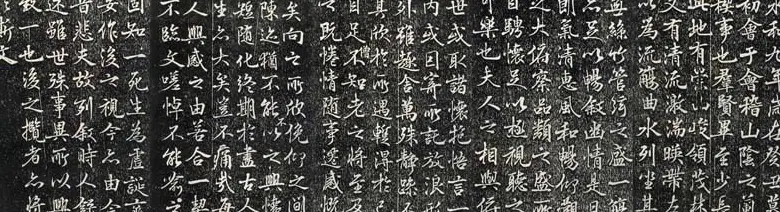 初會于會稽山陰之蘭
事也羣賢畢至少長
此地有崇山峻領茂林
又有清流激湍暎帶左
以為流觴曲水列坐其
無絲竹管弦之盛一觴
亦足以暢敘幽情是日
朗氣清惠風和暢仰觀
之大俯察品類之盛所
目騁懷足以極視聽之
可樂也夫人之相與俯
世或取諸懷抱悟言一
內或因寄所託放浪形
外雖趣舍萬殊靜躁不
其欣於所遇暫得於己
自足不知老之將至及
之既惓情隨事遷感慨
矣向之所欣俛仰之間
陳迹猶不能不以之興懷
短隨化終期於盡古人
生亦大矣豈不痛哉每
人興感之由若合一契
不臨文嗟悼不能喻之
固知一死生為虛誕齊
妄作後之視今亦由今
昔悲夫故列敘時人錄
述雖世殊事異所以興
致一也後之攬者亦將
斯文